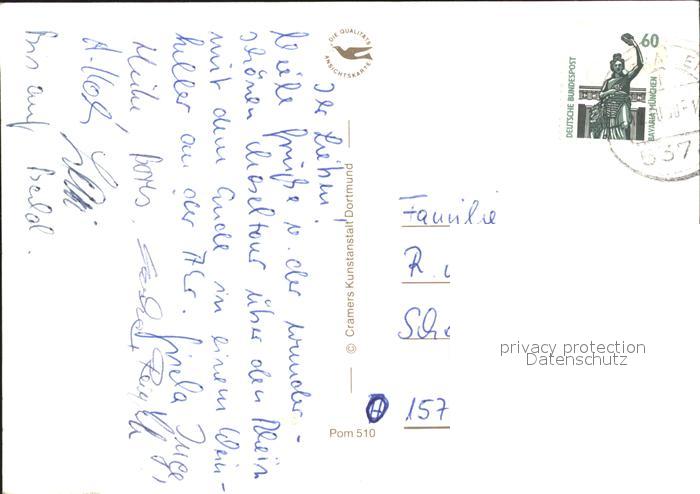 Ihr Lieben!
Viele Grüße v. der wunder-
schönen Moseltour über den Rhein
mit dem Ende in einem Wein-
keller an der Ahr. Gisela Inge,
Heike, Boris,
Bis auf Bald.
DIE QUALITÄTS
ANSICHTSKARTE
© Cramers Kunstanstalt Dortmund
Pom 510
60
DEUTSCHE BUNDESPOST
BAVARIA MÜNCHEN
537
Familie
R.
Sch
157
privacy protection
Datenschutz